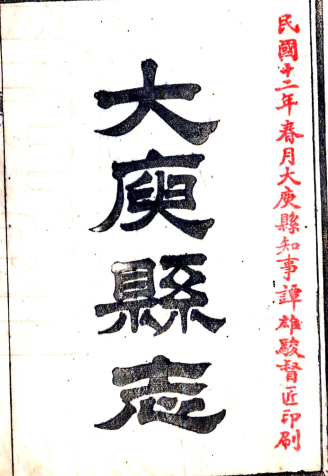 民國十二年春月大庾縣知事譚雄駿督匠印刷
大庾縣志